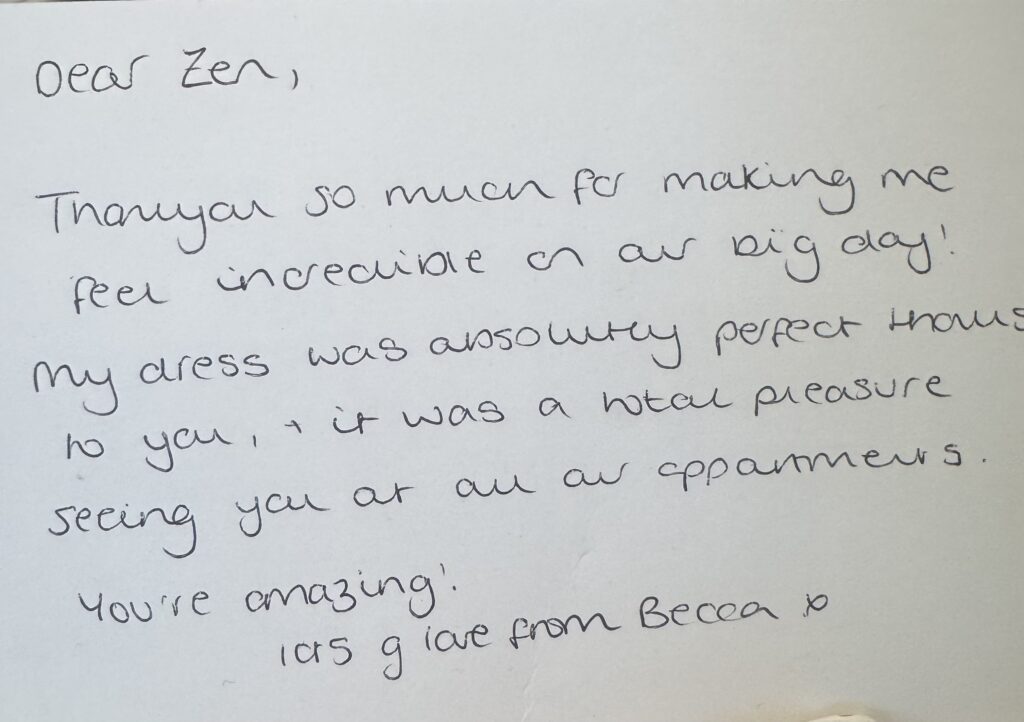 Dear Zen,
Thankyou so much for making me
feel incredible on our big day!
My dress was absolutely perfect thanks
to you, + it was a total pleasure
seeing you at all our appointments.
You're amazing!
lots of love from Becca x